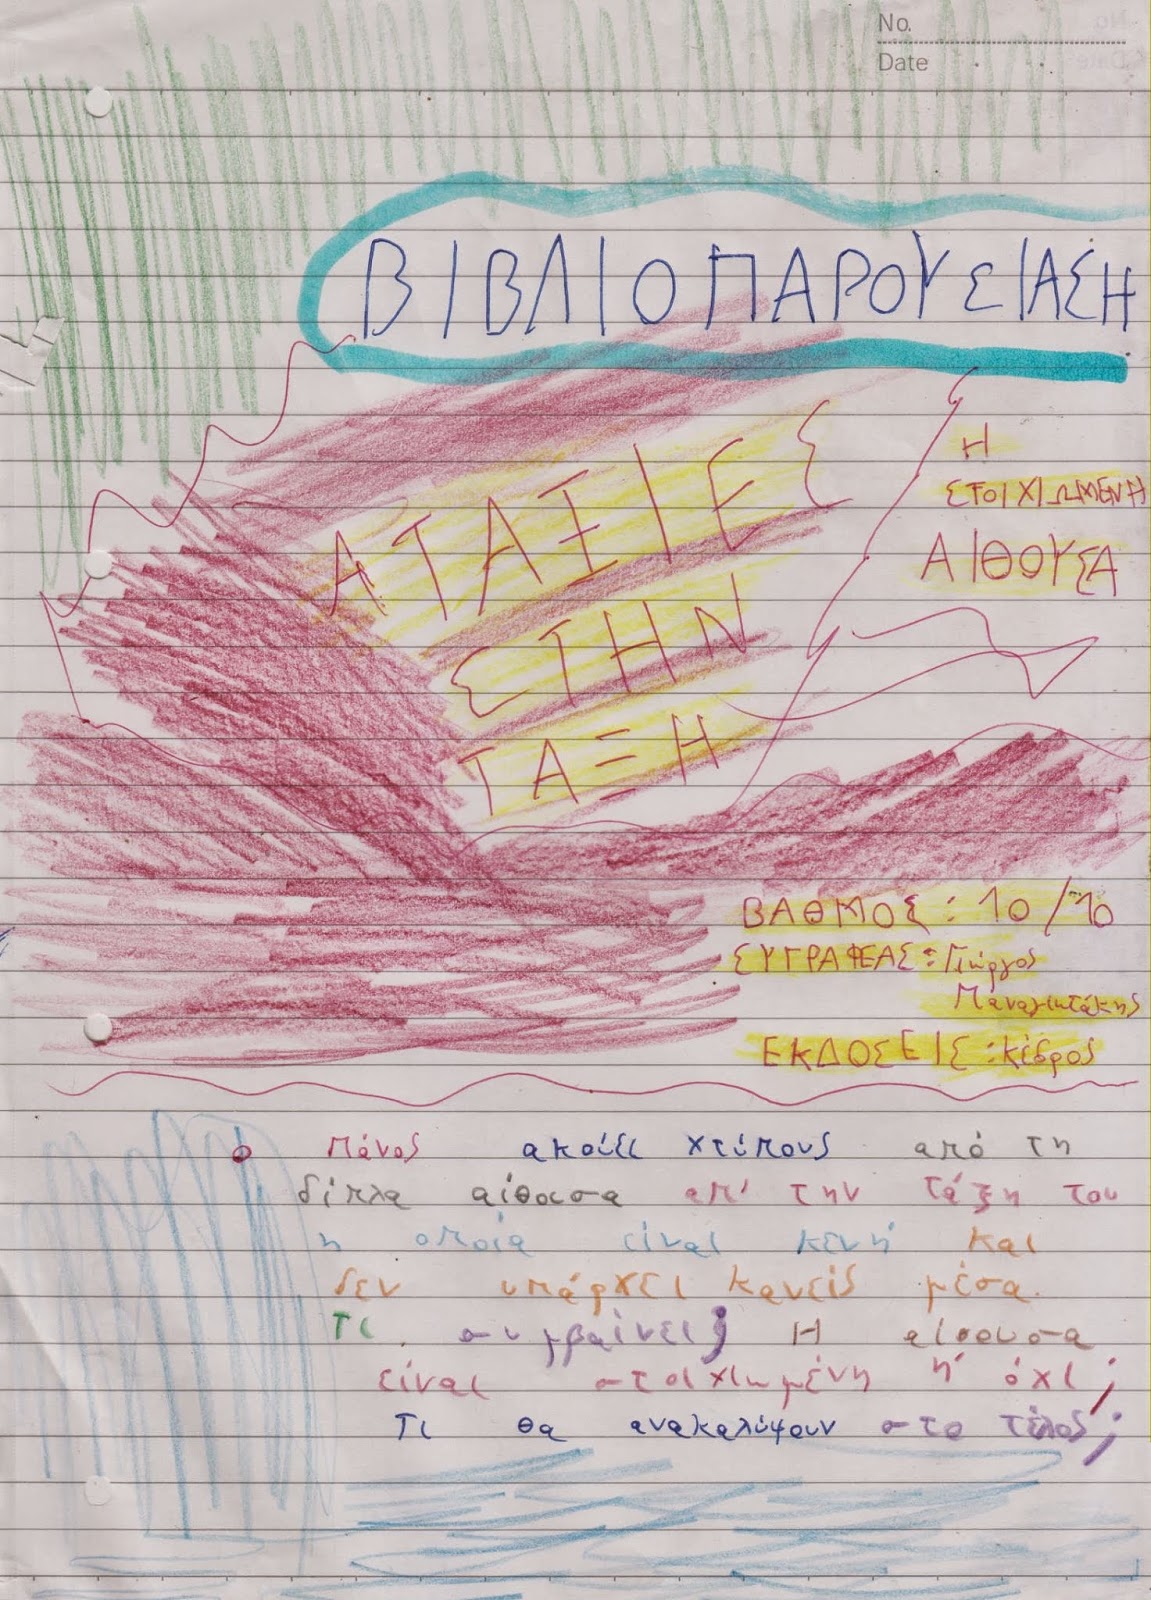 No.
Date
ΒΙΒΛΙΟΠΑΡΟΥΣΙΑΣΗ
ΑΤΑΞΙΕΣ
ΣΤΗΝ
ΤΑΞΗ
Η
ΣΤΟΙΧΙΩΜΕΝΗ
ΑΙΘΟΥΣΑ
ΒΑΘΜΟΣ : 10/10
ΣΥΓΡΑΦΕΑΣ : Γιώργος
Παναγιωτάκης
ΕΚΔΟΣΕΙΣ : κέδρος
ο Πάνος ακούει χτύπους από τη
δίπλα αίθουσα απ' την τάξη του
η οποία είναι κενή και
δεν υπάρχει κανείς μέσα.
Τι συμβαίνει; Η αίθουσα
είναι στοιχιωμένη ή όχι;
Τι θα ανακαλύψουν στο τέλος;